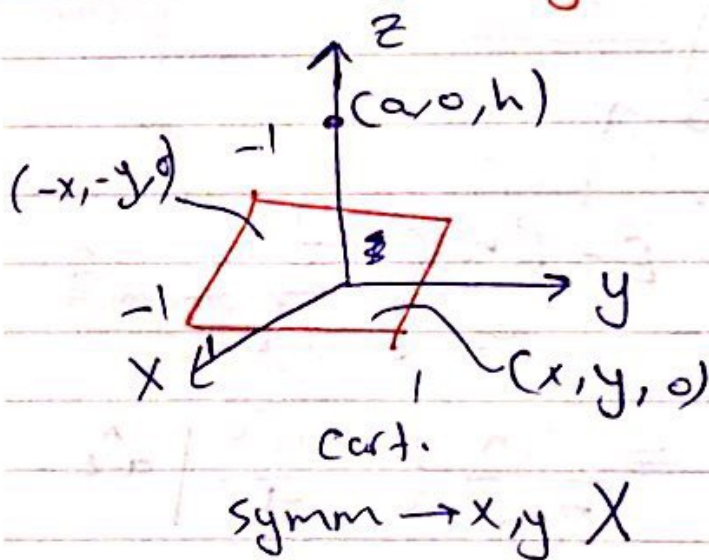 z
(0,0,h)
-1
(-x,-y,0)
y
-1
1
X
1
(x,y,0)
cart.
symm → x,y X